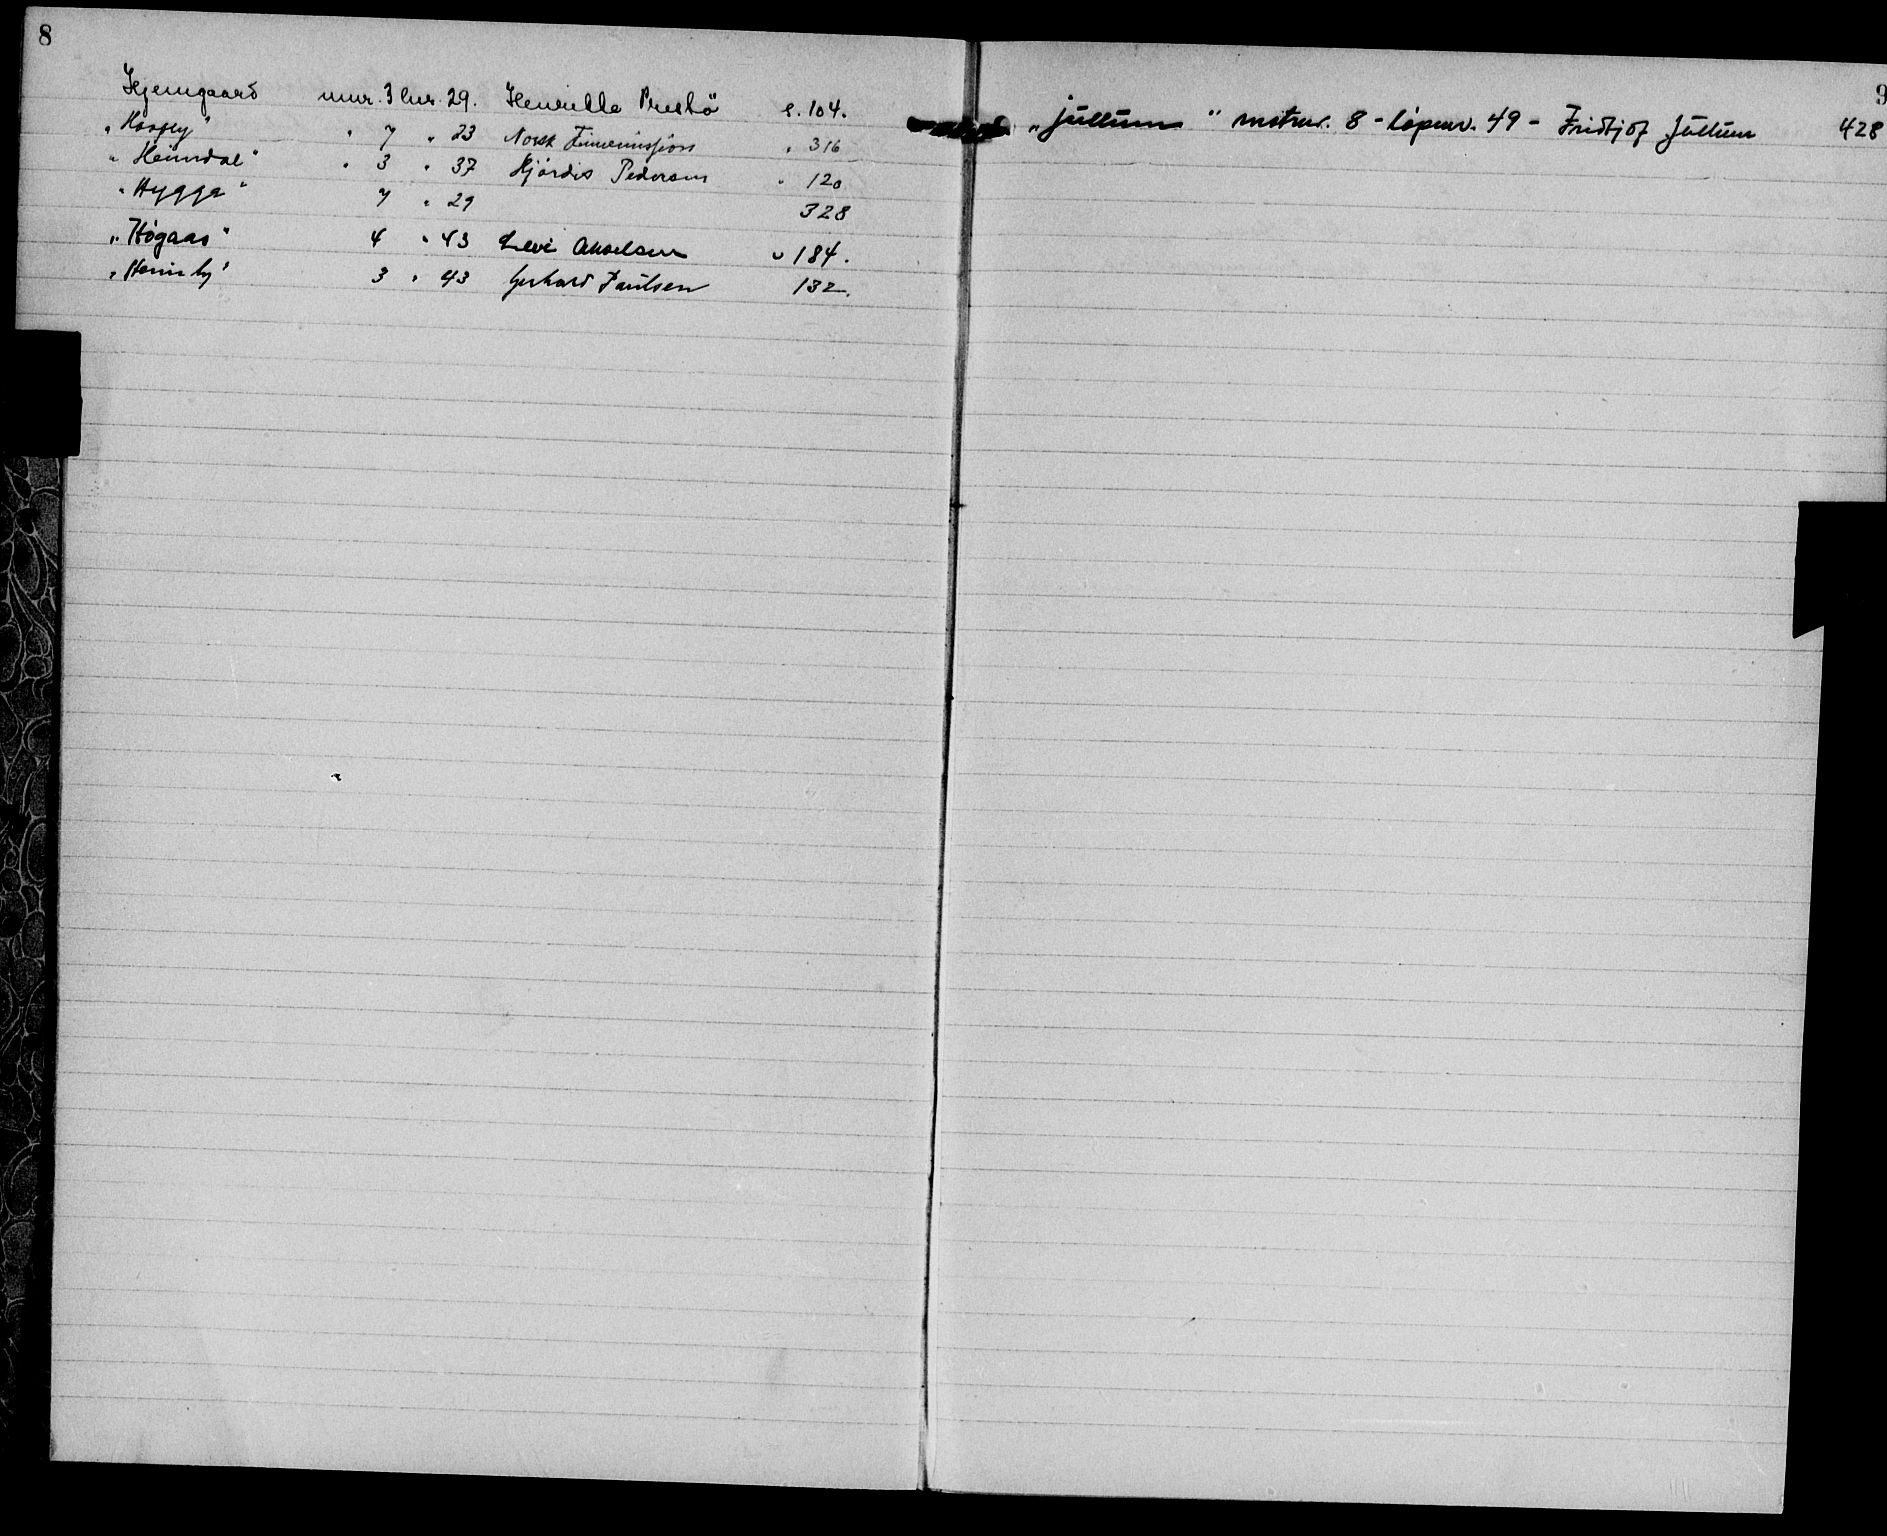 8
Hjemgaard mnr. 3 lnr. 29. Henrikke Prestö s. 104.
„Havfly" " 7 " 23 Norsk Finnemisjon " 316
„Heimdal" " 3 " 37 Hjördis Pedersen " 120
„Hygga" 7 " 29 328
„Høgaas" 4 " 43 Levi Akselsen " 184.
„Heimly" 3 " 43 Gerhard Paulsen 132.
9
„Jullum" matrnr. 8 - løpenr. 49 - Fridtjof Jullum 428